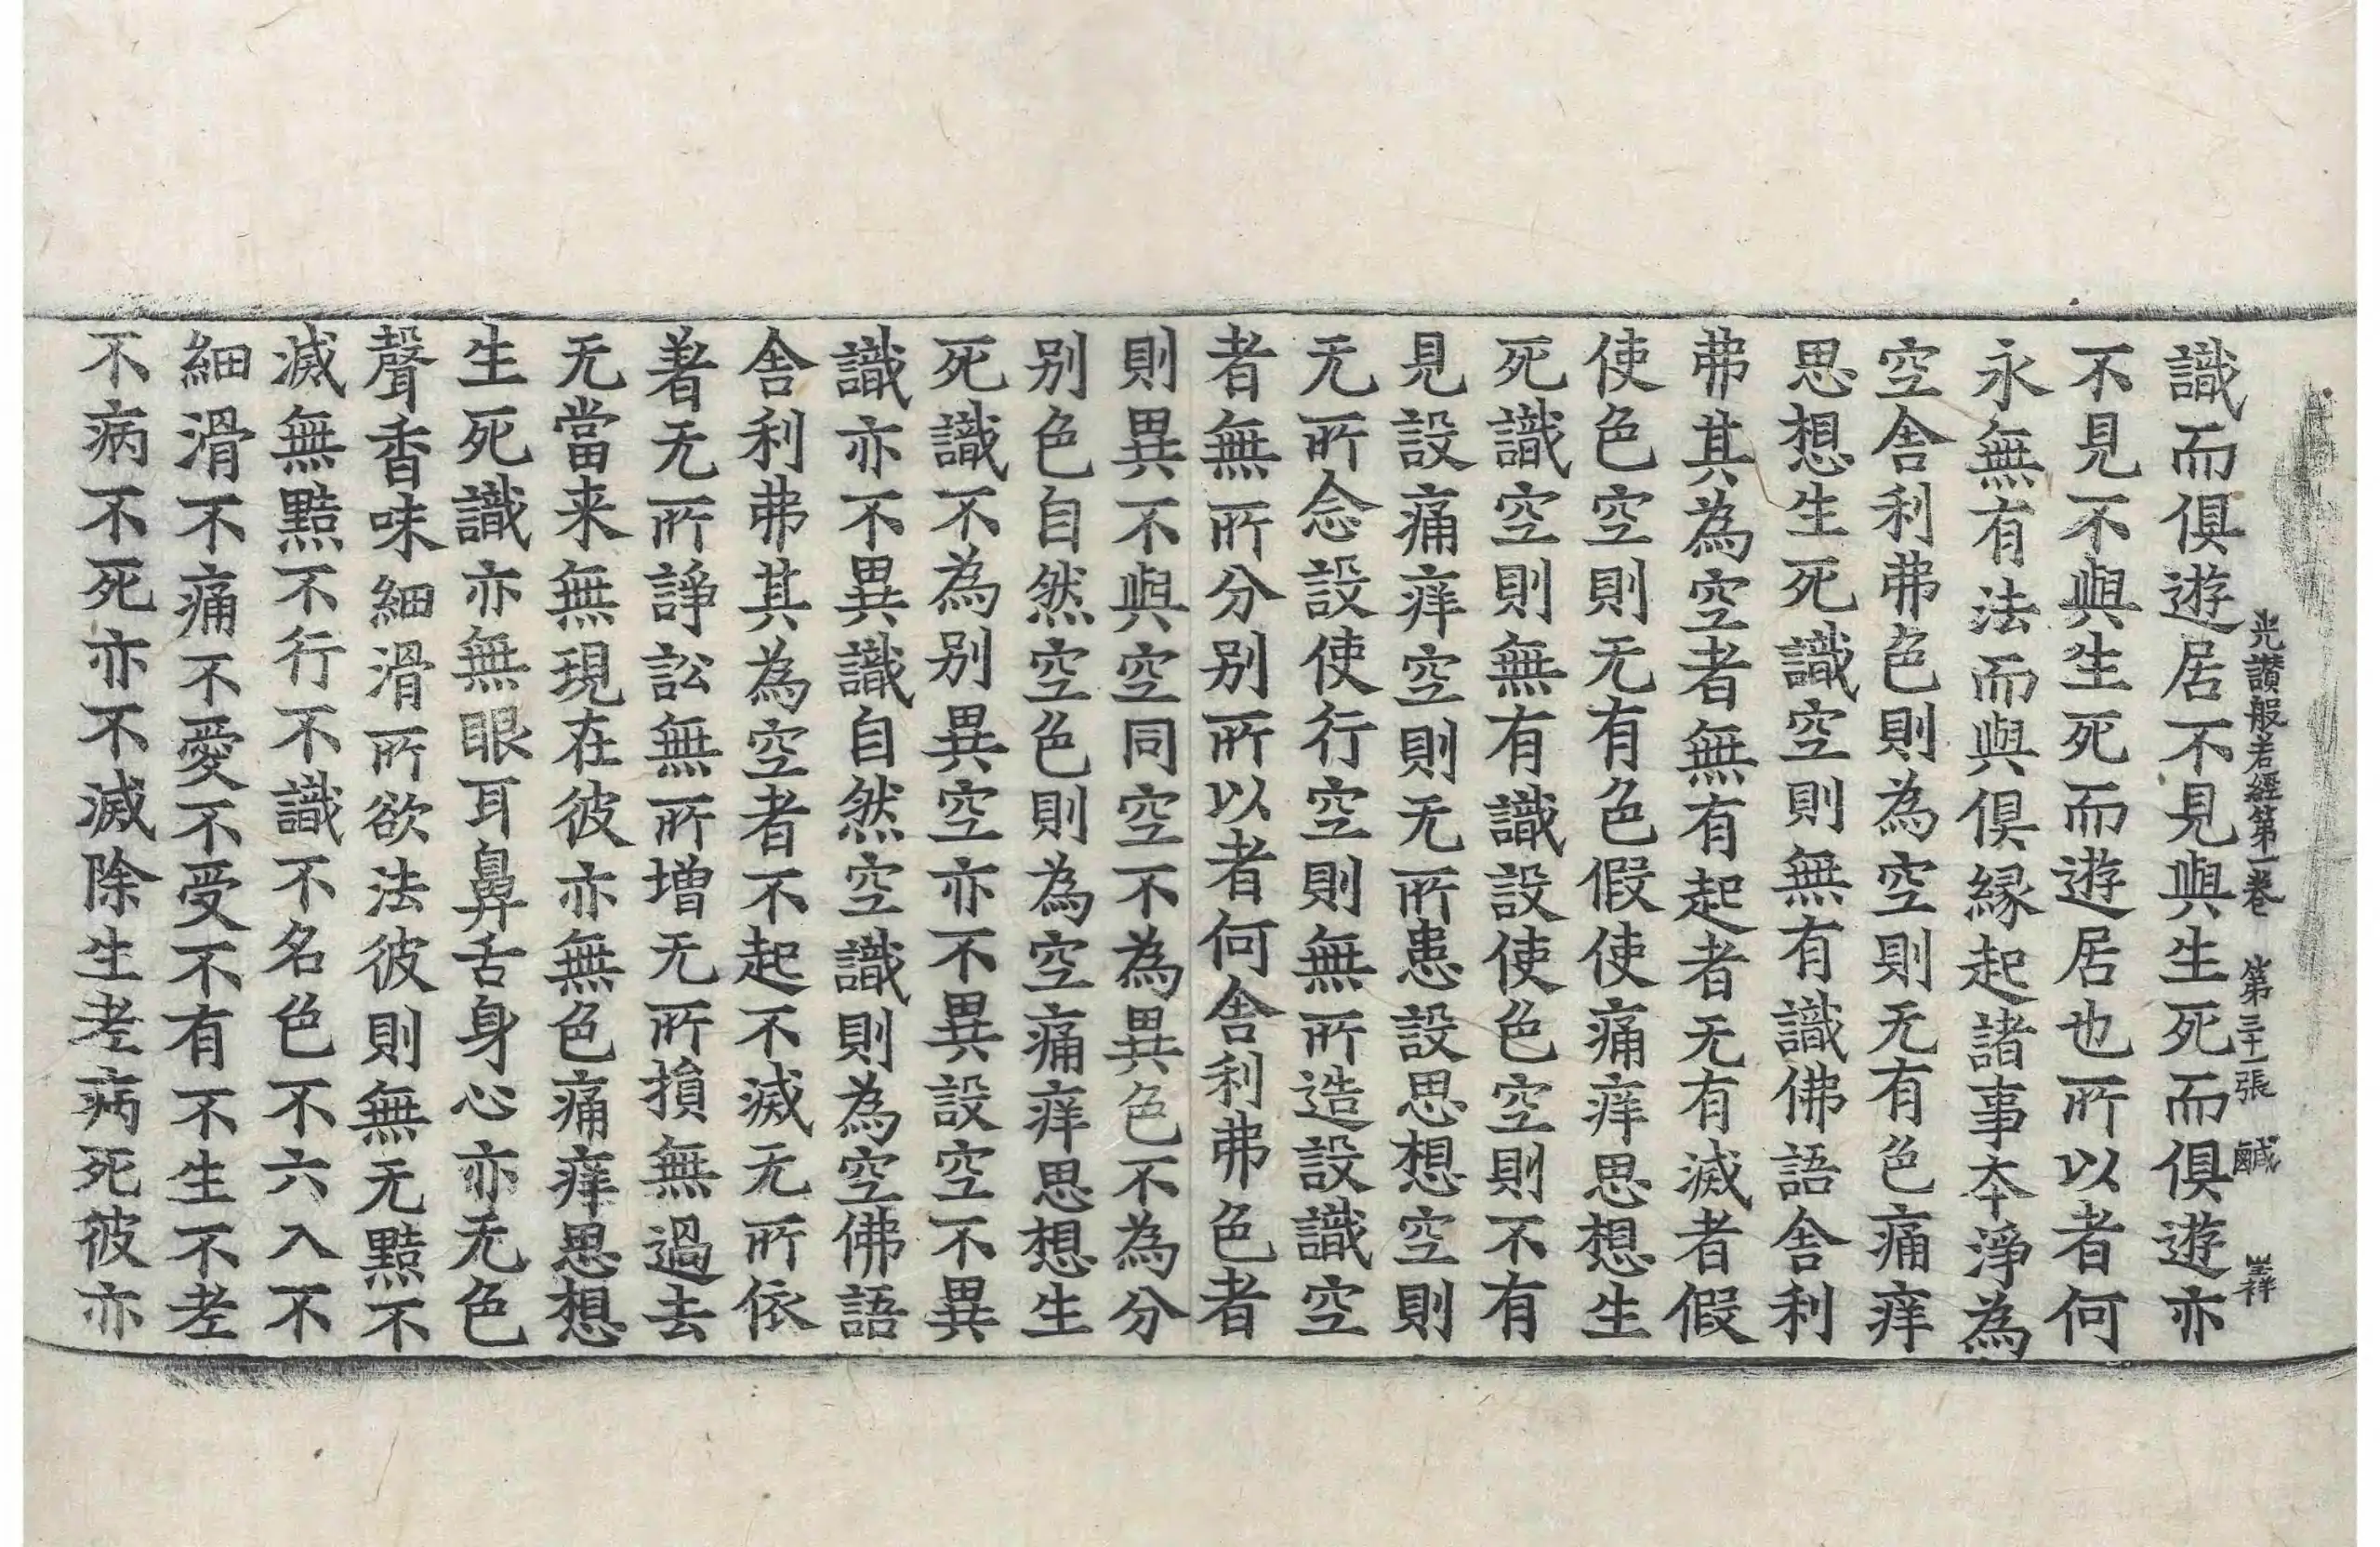 光讃般若經第一卷　第三十一張　鹹　祥
識而俱遊居不見與生死而俱遊亦
不見不與生死而遊居也所以者何
永無有法而與俱縁起諸事夲淨為
空舍利弗色則為空則无有色痛痒
思想生死識空則無有識佛語舍利
弗其為空者無有起者无有滅者假
使色空則无有色假使痛痒思想生
死識空則無有識設使色空則不有
見設痛痒空則无所患設思想空則
无所念設使行空則無所造設識空
者無所分别所以者何舍利弗色者
則異不與空同空不為異色不為分
别色自然空色則為空痛痒思想生
死識不為别異空亦不異設空不異
識亦不異識自然空識則為空佛語
舍利弗其為空者不起不滅无所依
著无所諍訟無所增无所損無過去
无當来無現在彼亦無色痛痒思想
生死識亦無眼耳鼻舌身心亦无色
聲香味細滑所欲法彼則無无黠不
滅無黠不行不識不名色不六入不
細滑不痛不愛不受不有不生不老
不病不死亦不滅除生老病死彼亦